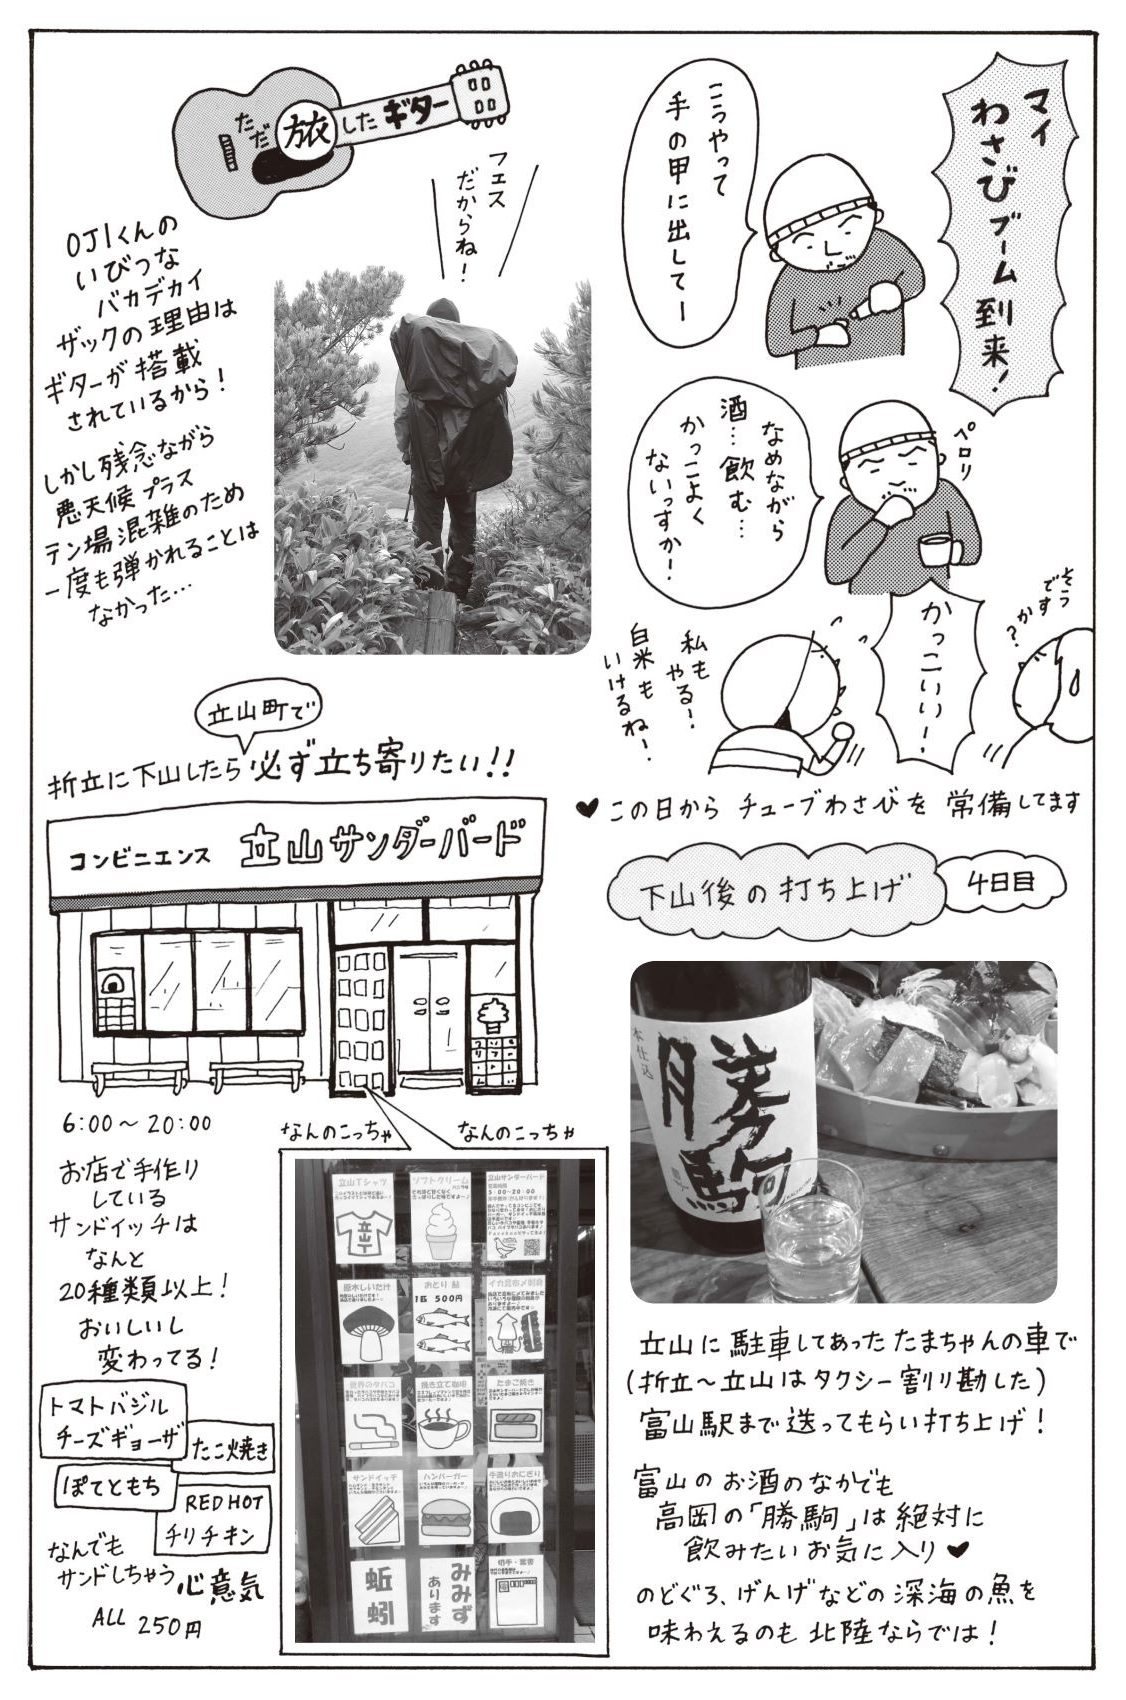 マイ
わさびブーム到来!
こうやって
手の甲に出してー
ペロリ
なめながら
酒…飲む…
かっこよく
ないっすか!
かっこいい!
そう
ですか?
私も
やる!
白米も
いけるね!
♥この日から チューブわさびを 常備してます
下山後の打ち上げ
4日目
本仕込
勝駒
立山に駐車してあったたまちゃんの車で
(折立〜立山はタクシー割り勘した)
富山駅まで送ってもらい打ち上げ!
富山のお酒のなかでも
高岡の「勝駒」は絶対に
飲みたいお気に入り♥
のどぐろ、げんげなどの深海の魚を
味わえるのも北陸ならでは!
ただ旅したギター
フェス
だからね!
OJIくんの
いびつな
バカデカイ
ザックの理由は
ギターが搭載
されているから!
しかし残念ながら
悪天候プラス
テン場混雑のため
一度も弾かれることは
なかった…
立山町で
折立に下山したら必ず立ち寄りたい!!
コンビニエンス 立山サンダーバード
6:00〜20:00
お店で手作り
している
サンドイッチは
なんと
20種類以上!
おいしいし
変わってる!
トマトバジル
チーズギョーザ
たこ焼き
ぽてともち
RED HOT
チリチキン
なんでも
サンドしちゃう心意気
ALL 250円
なんのこっちゃ
なんのこっちゃ
立山Tシャツ
ソフトクリーム
立山サンダーバード
5:00〜20:00
原木しいたけ
おとり鮎
1匹 500円
世界のタバコ
挽き立て珈琲
たまご焼き
サンドイッチ
ハンバーガー
手造りおにぎり
蚯蚓
みみず
あります
切手・葉書